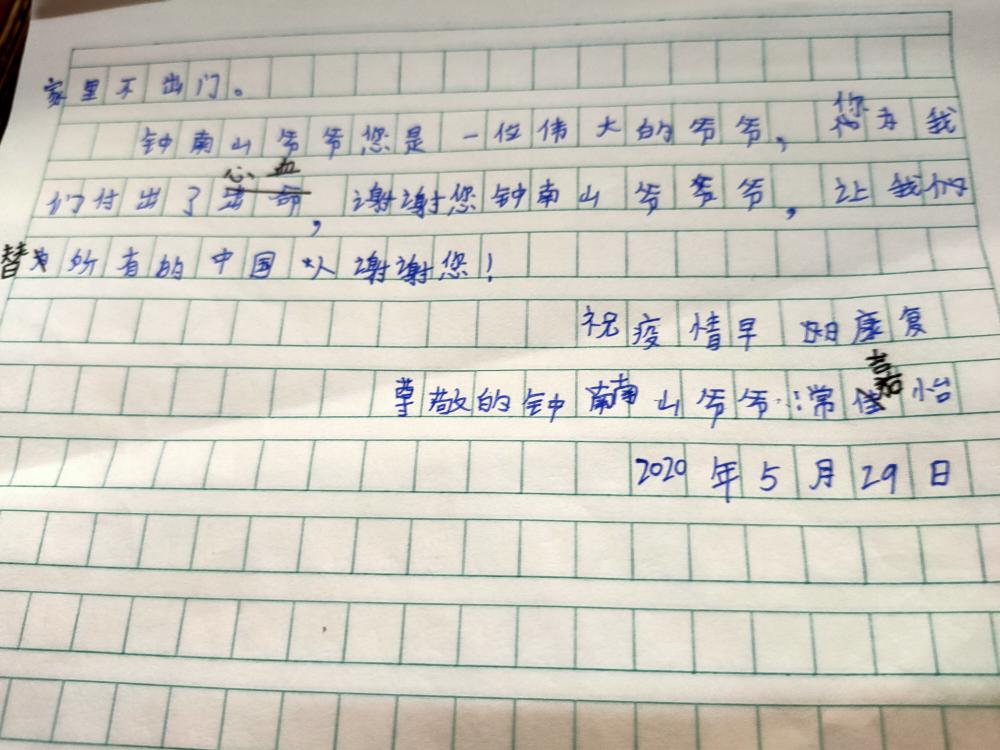 家里不出门。
钟南山爷爷您是一位伟大的爷爷，您为我
们付出了心血，谢谢您钟南山爷爷爷，让我们
替为所有的中国人谢谢您！
祝疫情早日康复
尊敬的钟南山爷爷：常嘉怡
2020年5月29日